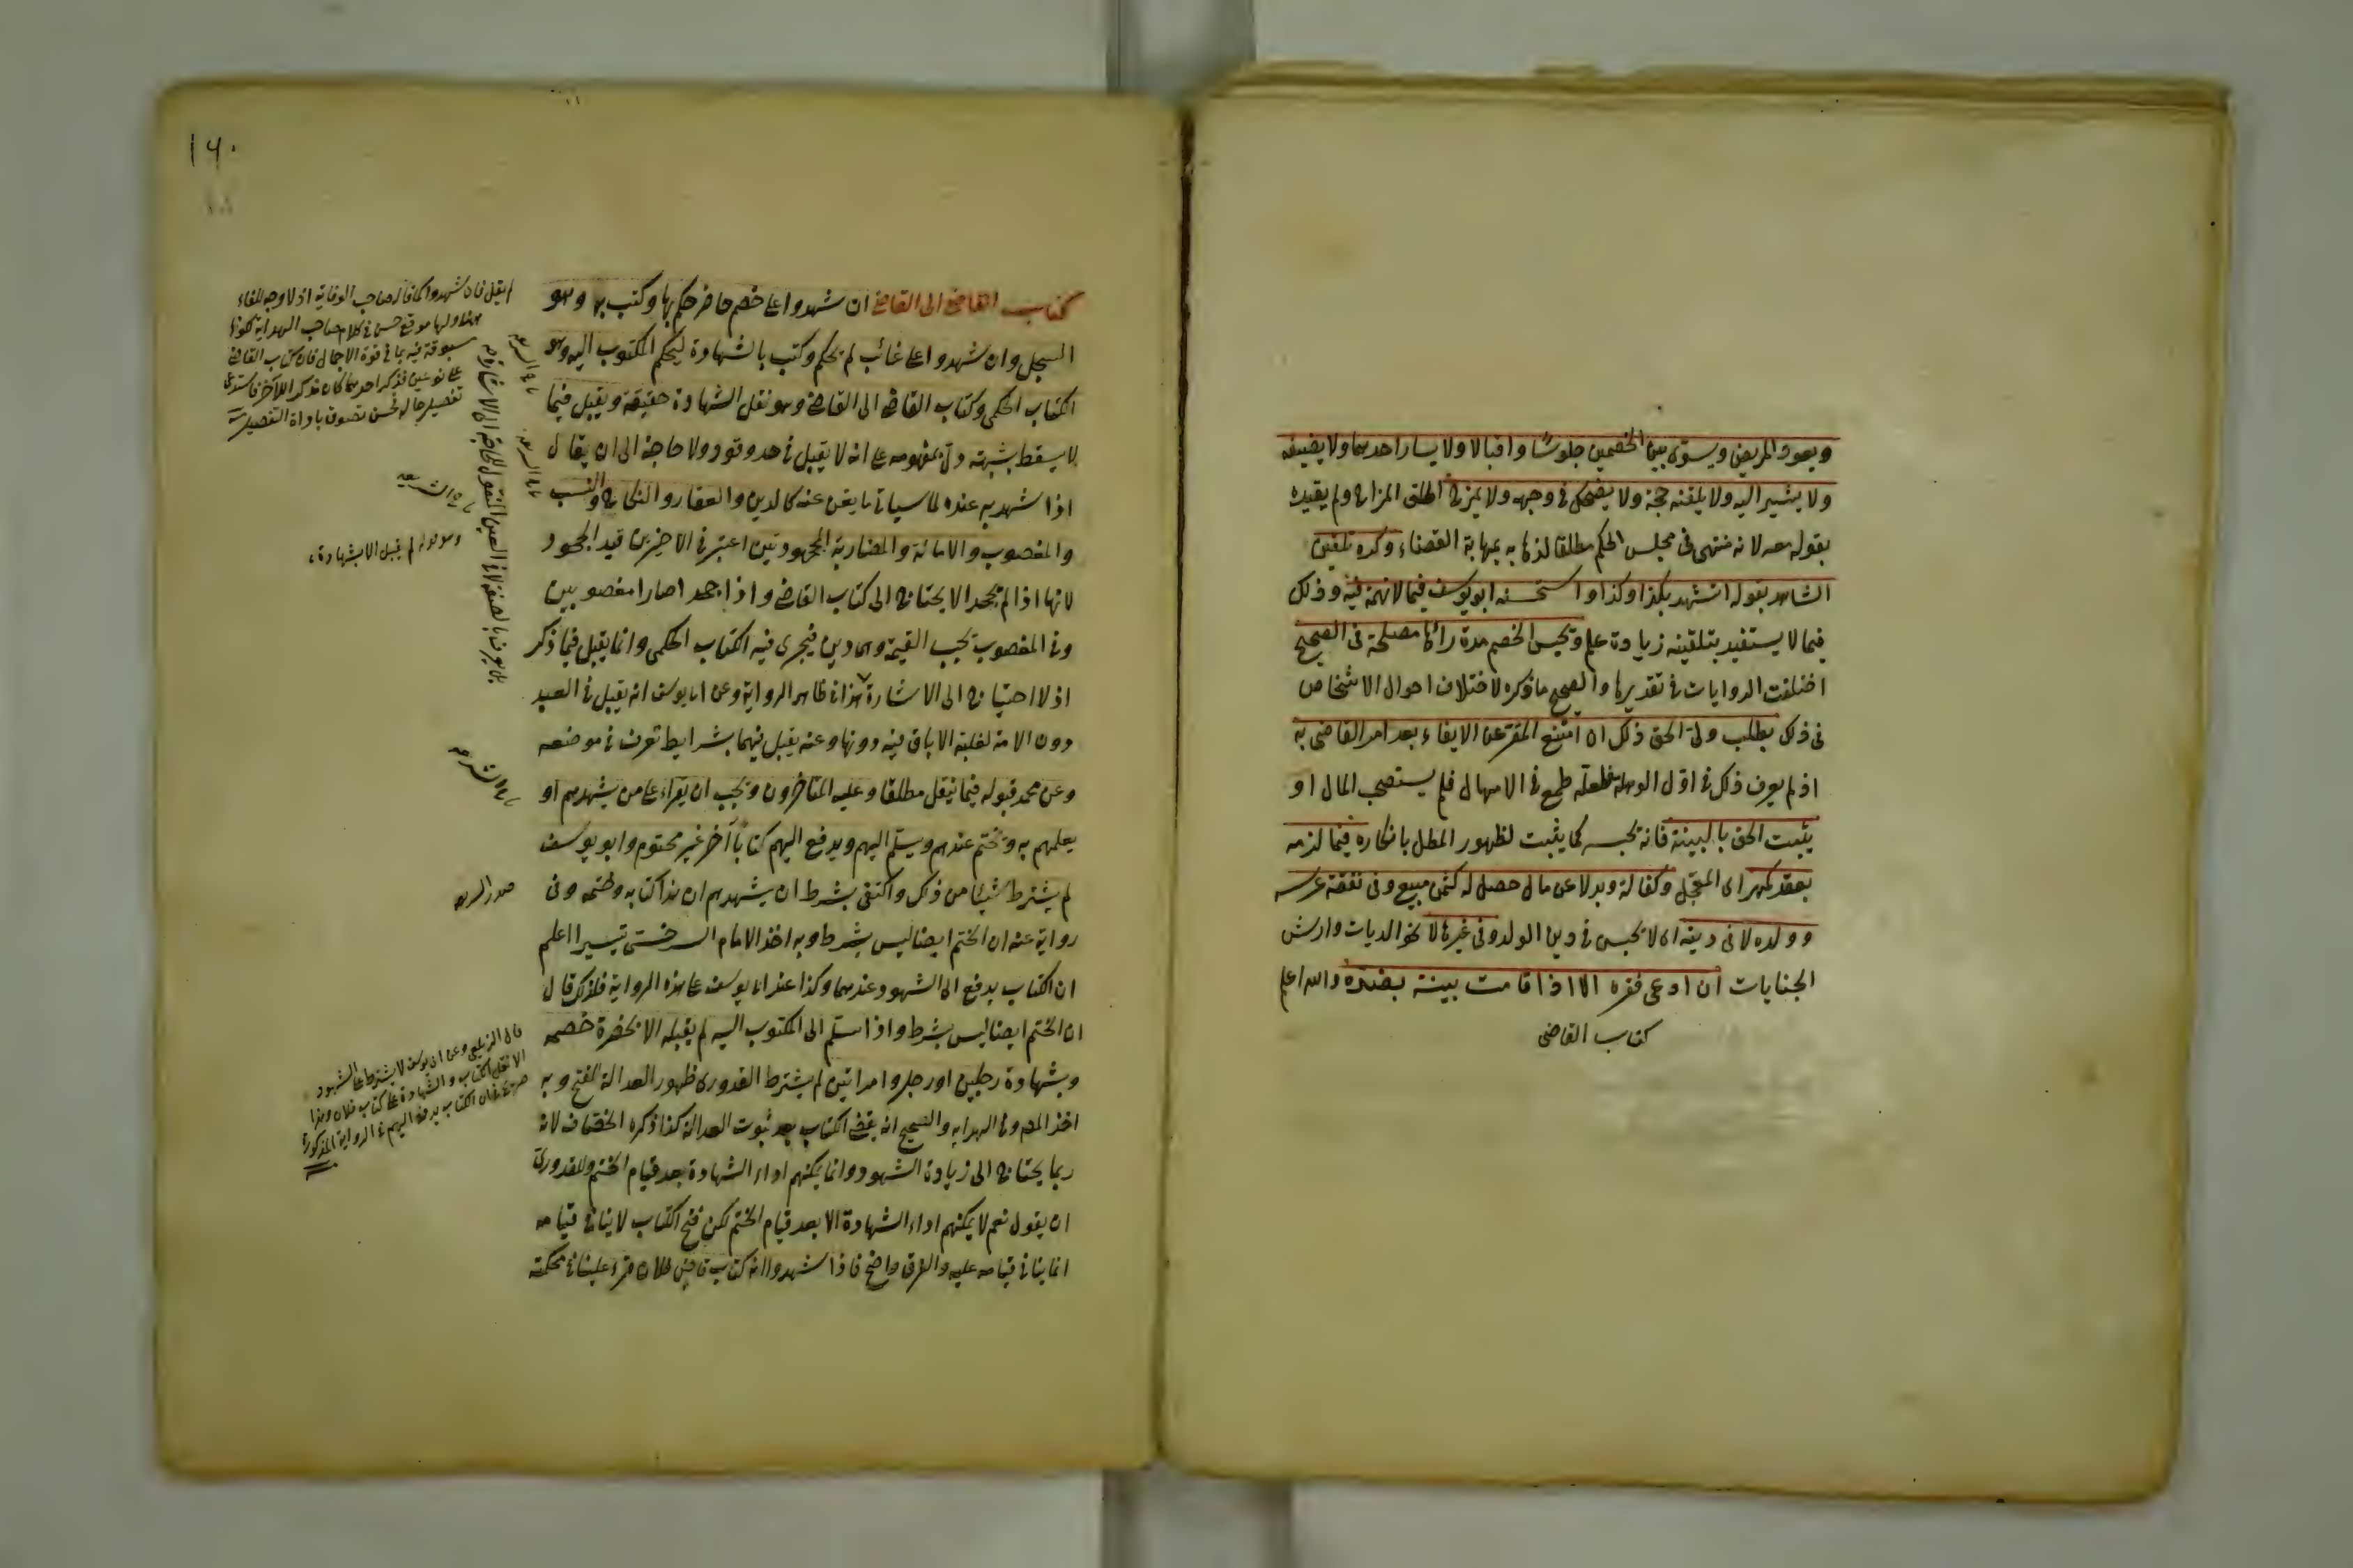 ويعود المريض ويسوى بين الخصمين جلوسًا واقبالا ولا يسار احدهما ولا يضيفه
ولا يشير اليه ولا يلقنه حجة ولا يضحك في وجهه ولا يمزح اطلق المزاح ولم يقيده
بقوله معه لانه منهى فى مجلس الحكم مطلقا لذهابه بمهابة القضاء وكره تلقين
الشاهد بقوله اتشهد بكذا وكذا واستحسنه ابو يوسف فيما لا تهمة فيه وذلك
فيما لا يستفيد بتلقينه زيادة علم ويحبس الخصم مدة رآها مصلحة فى الصحيح
اختلفت الروايات في تقديرها والصحيح ما ذكره لاختلاف احوال الاشخاص
فى ذلك بطلب ولي الحق ذلك ان امتنع المقر عن الايفاء بعد امر القاضى به
اذ لم يعرف ذلك في اول الوهلة فلعله طمع في الامهال فلم يستصحب المال او
يثبت الحق بالبينة فانه يحبسه كما يثبت لظهور المطل بانكاره فيما لزمه
بعقد كمهر اى المعجل وكفالة وبدلا عن مال حصل له كثمن مبيع وفى نفقة عرسه
وولده لا فى دينه اى لا يحبس في دين الولد وفى غيرها لا نحو الديات وارش
الجنايات ان ادعى فقره الا اذا قامت بينة بضده والله اعلم
كتاب القاضى
١٦٠
كتاب القاضي الى القاضي ان شهدوا على خصم حاضر حكم بها وكتب به وهو
السجل وان شهدوا على غائب لم يحكم وكتب بالشهادة ليحكم المكتوب اليه وهو
الكتاب الحكمى وكتاب القاضي الى القاضي وهو نقل الشهادة حقيقة ويقبل فيما
لا يسقط بشبهة دل بمفهومه على انه لا يقبل في حد وقود ولا حاجة الى ان يقال
اذا شهد به عنده لما سياتي ما يغن عنه كالدين والعقار والنكاح والنسب
والمغصوب والامانة والمضاربة المجحودتين اعتبر في الاخيرين قيد الجحود
لانها اذا لم يجحد لا يحتاج الى كتاب القاضي واذا جحد اصارا مغصوبين
وفي المغصوب يجب القيمة وهى دين فيجرى فيه الكتاب الحكمى وانما يقبل فيما ذكر
اذ لا احتياج الى الاشارة هذا في ظاهر الرواية وعن ابى يوسف انه يقبل في العبد
دون الامة لغلبة الاباق فيه دونها وعنه يقبل فيهما بشرايط تعرف في موضعه
وعن محمد قبوله فيما ينقل مطلقا وعليه المتاخرون ويجب ان يقراء على من يشهدهم او
يعلمهم به ويختم عندهم ويسلم اليهم ويدفع اليهم كتابا آخر غير مختوم وابو يوسف
لم يشترط شيئا من ذلك واكتفى بشرط ان يشهدهم ان هذا كتابه وختمه وفى
رواية عنه ان الختم ايضا ليس بشرط وبه اخذ الامام السرخسى تيسيرا اعلم
ان الكتاب يدفع الى الشهود عندهما وكذا عند ابى يوسف على هذه الرواية فلذلك قال
ان الختم ايضا ليس بشرط واذا سلم الى المكتوب اليه لم يقبله الا بحضرة خصمه
وبشهادة رجلين او رجل وامراتين لم يشترط القدورى ظهور العدالة للفتح وبه
اخذ المص وفي الهدايه والصحيح انه يفض الكتاب بعد ثبوت العدالة كذا ذكره الخصاف لانه
ربما يحتاج الى زيادة الشهود وانما يمكنهم اداء الشهادة بعد قيام الختم وللقدورى
ان يقول نعم لا يمكنهم اداء الشهادة الا بعد قيام الختم لكن فتح الكتاب لا ينافي قيامه
انما ينافي قيامه عليه والفرق واضح فاذا شهدوا انه كتاب قاض فلان قرء علينا في محكمته
لم يقل فان شهدوا كما قال صاحب الوقاية اذ لا وجه للفاء
هنا ولها موقع حسن في كلام صاحب الهداية لكونها
مسبوقة فيه بما في قوة الاجمال فان كتاب القاضي
على نوعين فذكر احدهما كان مذكرا للآخر فاستدعى
صدر الشريعه
قال الزيلعى وعن ابى يوسف لا يشترط على الشهود
الا نقل الكتاب والشهادة على كتاب فلان وهذا
صريح في ان الكتاب يدفع اليهم في الرواية المذكورة